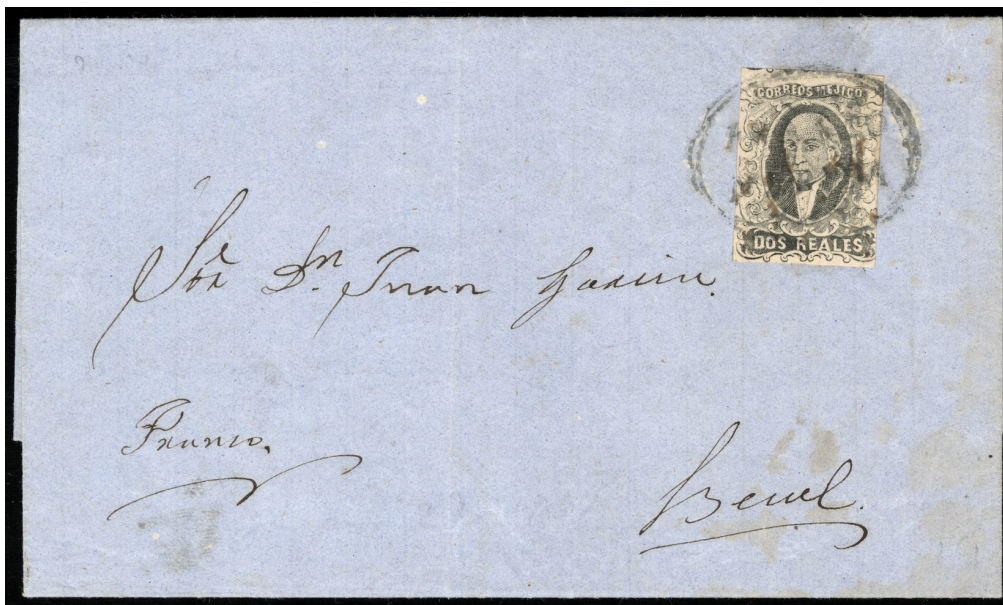 CORREOS MEJICO
DOS REALES
Sr. Dn. Juan Garcia.
Franco.